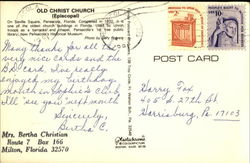 OLD CHRIST CHURCH
(Episcopal)
On Seville Square, Pensacola, Florida. Completed in 1832, it is
one of the oldest church buildings in Florida. Used by Union
troops as a barracks and chapel. Pensacola's 1st free public
library, now Pensacola Historical Museum.
POST CARD
Many thanks for all the
very nice cards and the
B.D. card. I've really
enjoyed my birthday
month in Sophie's Club.
I'll "see you" next month
Sincerely,
Bertha C.
Mrs. Bertha Christian
Route 7 Box 166
Milton, Florida 32570
Harry Fox
405 S 27th St
Harrisburg, Pa. 17103